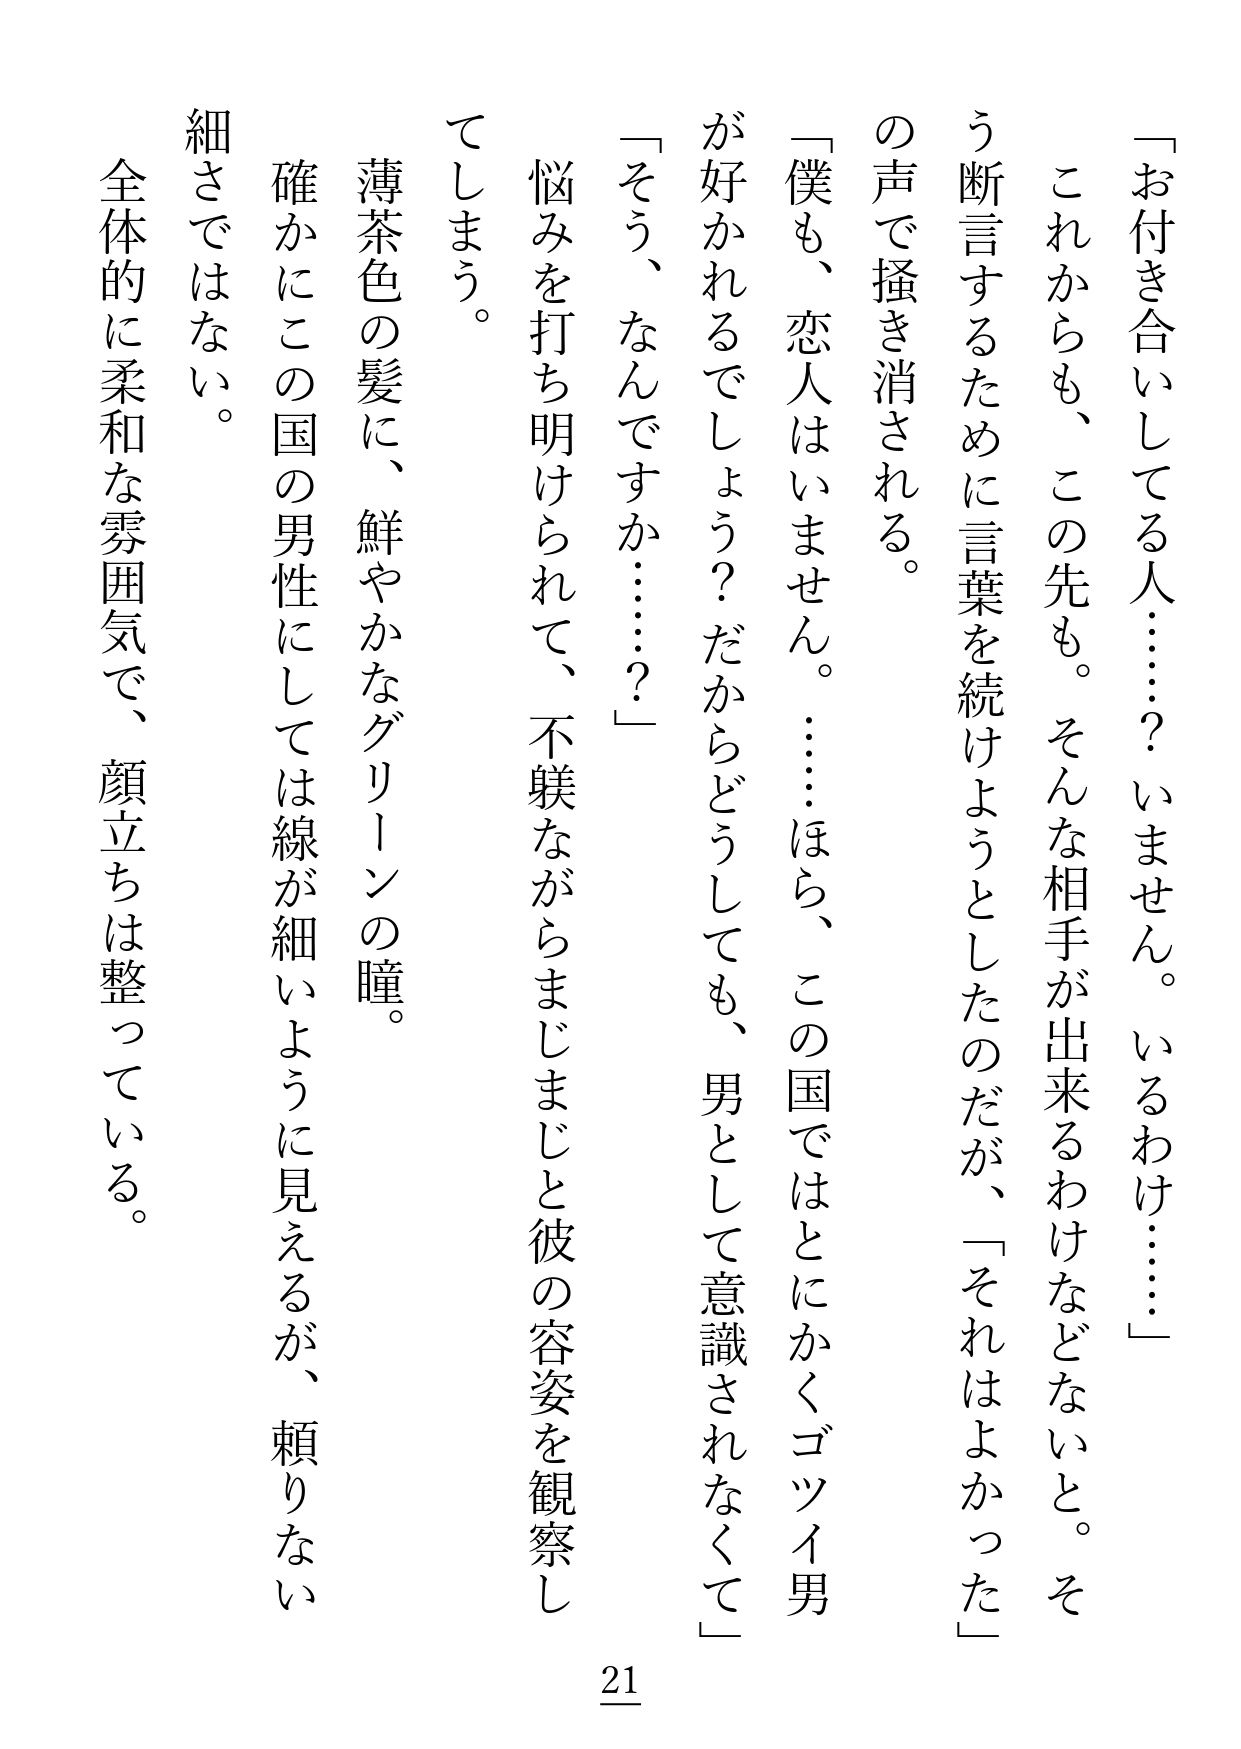 「お付き合いしてる人……？ いません。いるわけ……」
　これからも、この先も。そんな相手が出来るわけなどないと。そ
う断言するために言葉を続けようとしたのだが、「それはよかった」
の声で掻き消される。
「僕も、恋人はいません。……ほら、この国ではとにかくゴツイ男
が好かれるでしょう？ だからどうしても、男として意識されなくて」
「そう、なんですか……？」
　悩みを打ち明けられて、不躾ながらまじまじと彼の容姿を観察し
てしまう。
　薄茶色の髪に、鮮やかなグリーンの瞳。
　確かにこの国の男性にしては線が細いように見えるが、頼りない
細さではない。
　全体的に柔和な雰囲気で、顔立ちは整っている。
21